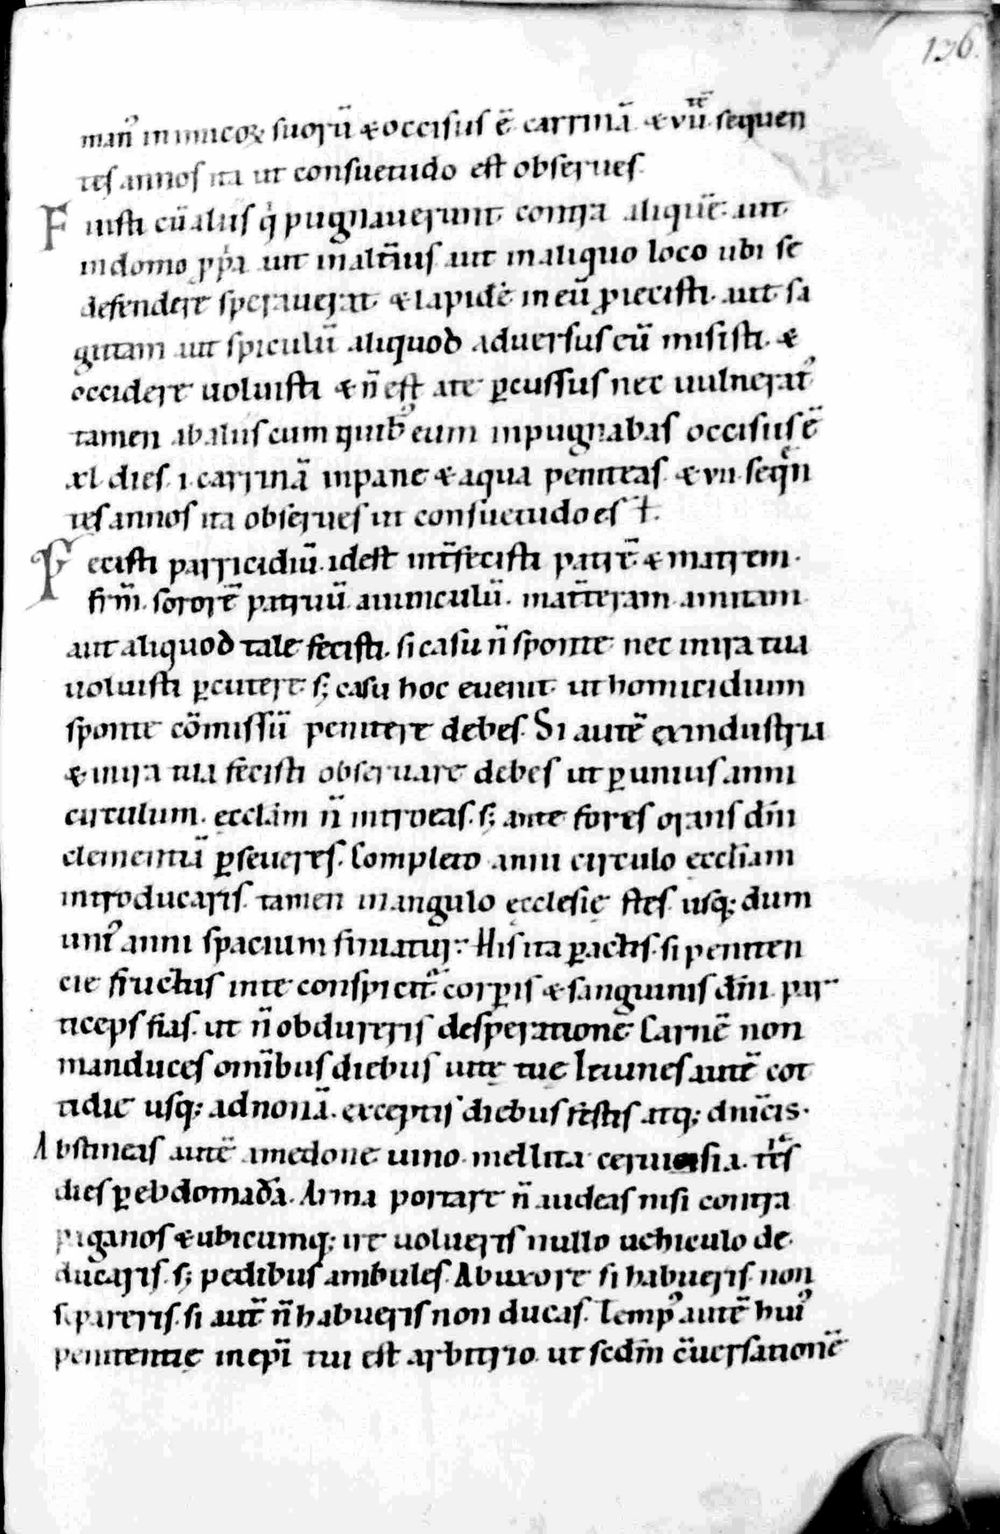 136.
man᾽ inimicoꝝ suoꝝũ ⁊ occisus ẽ. carrinã ⁊ vii. sequen
tes annos ita ut consuetudo est obserues.
Fuisti cũ aliis q̇ pugnauerunt contra aliquẽ. aut
in domo ꝓp̃a aut in alt̃ius aut in aliquo loco ubi se
defendere sperauerat ⁊ lapidẽ in eũ ꝓiecisti. aut sa
gittam aut spiculũ aliquod aduersus eũ misisti. ⁊
occidere uoluisti ⁊ ñ est a te ꝑcussus nec uulnerat᾽
tamen ab aliis cum quib᾽ eum inpugnabas occisus ẽ
xl dies. i. carrinã in pane ⁊ aqua peniteas. ⁊ vii. seq̃n
tes annos ita obserues ut consuetudo est.
Fecisti parricidiũ. id est int̃fecisti patrẽ. ⁊ matrem.
fr̃m. sororẽ patruũ. auunculũ. mat̃teram. amitam
aut aliquod tale fecisti. si casu ñ sponte nec in ira tua
uoluisti ꝑcutere. sꝫ casu hoc euenit. ut homicidium
sponte cõmissũ penitere debes. Si autẽ ex industria
⁊ in ira tua fecisti obseruare debes ut ꝑ unius anni
circulum. ęccl̃am ñ introeas. sꝫ ante fores orans dñi
clementiã ꝑseueres. Completo anni circulo ęccl̃iam
introducaris. tamen in angulo ęcclesię stes. usqꝫ dum
uni᾽ anni spacium finiatur. His ita ꝑactis. si peniten
cie fructus in te conspicit᾽. corꝑis ⁊ sanguinis dñi. par
ticeps fias. ut ñ obdureris desperationẽ. Carnẽ non
manduces om̃ibus diebus uitę tuę. Ieiunes autẽ cot
tidie usqꝫ ad nonã. exceptis diebus festis atqꝫ dñicis.
Abstineas autẽ a medone uino. mellita ceruisia. tr̃s
dies ꝑ ebdomadã. Arma portare ñ audeas nisi contra
paganos ⁊ ubicumqꝫ ire uolueris nullo uehiculo de
ducaris. sꝫ pedibus ambules. Ab uxore si habueris. non
separeris. si aut̃ ñ habueris non ducas. Temp᾽ autẽ hui᾽
penitentię in ep̃i tui est arbitrio. ut sc̃dm c̃uersationẽ